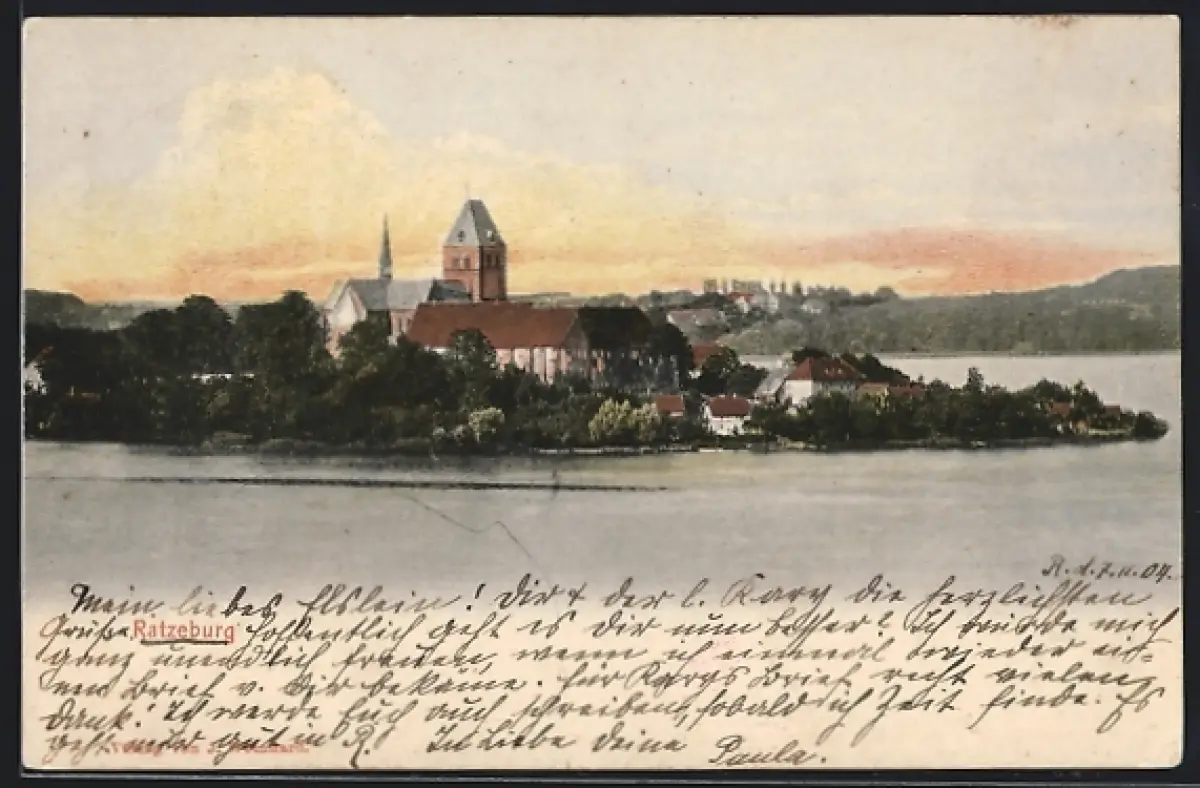 R. d. 7. 11. 04.
Mein liebes Elslein! Dir & der l. Karg die herzlichsten
Grüße Ratzeburg Hoffentlich geht es Dir nun besser! Ich würde mich
ganz unendlich freuen, wenn ich einmal wieder ei-
nen Brief v. Dir bekäme. Für Kargs Brief recht vielen
Dank! Ich werde Euch auch schreiben, sobald ich Zeit finde. Es
geht mir gut in R. In Liebe deine Paula.
Verlag von J.